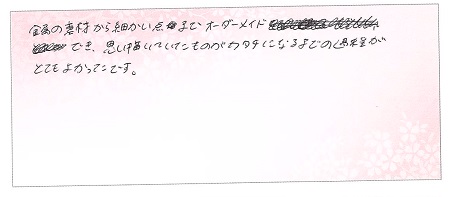 全ての素材から細かい点までオーダーメイド
でき、思い描いていたものがカタチになるまでの過程が
とてもよかったです。